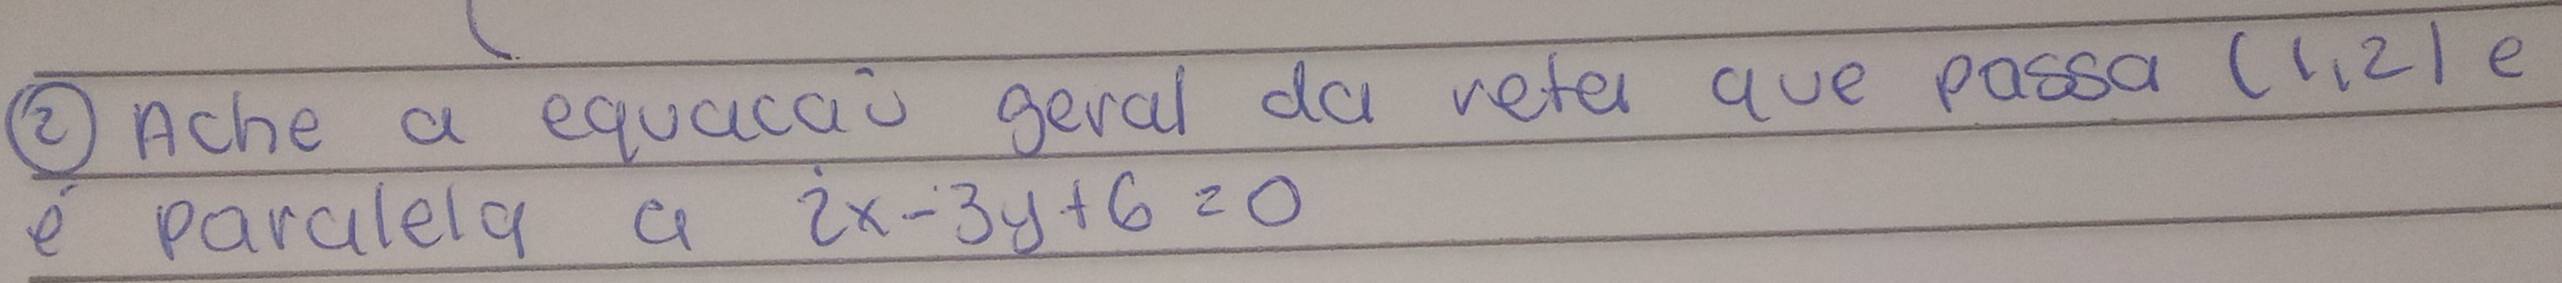 ② Ache a equacaõ geral da reta que passa (1,2) e
é paralela a 2x-3y+6=0